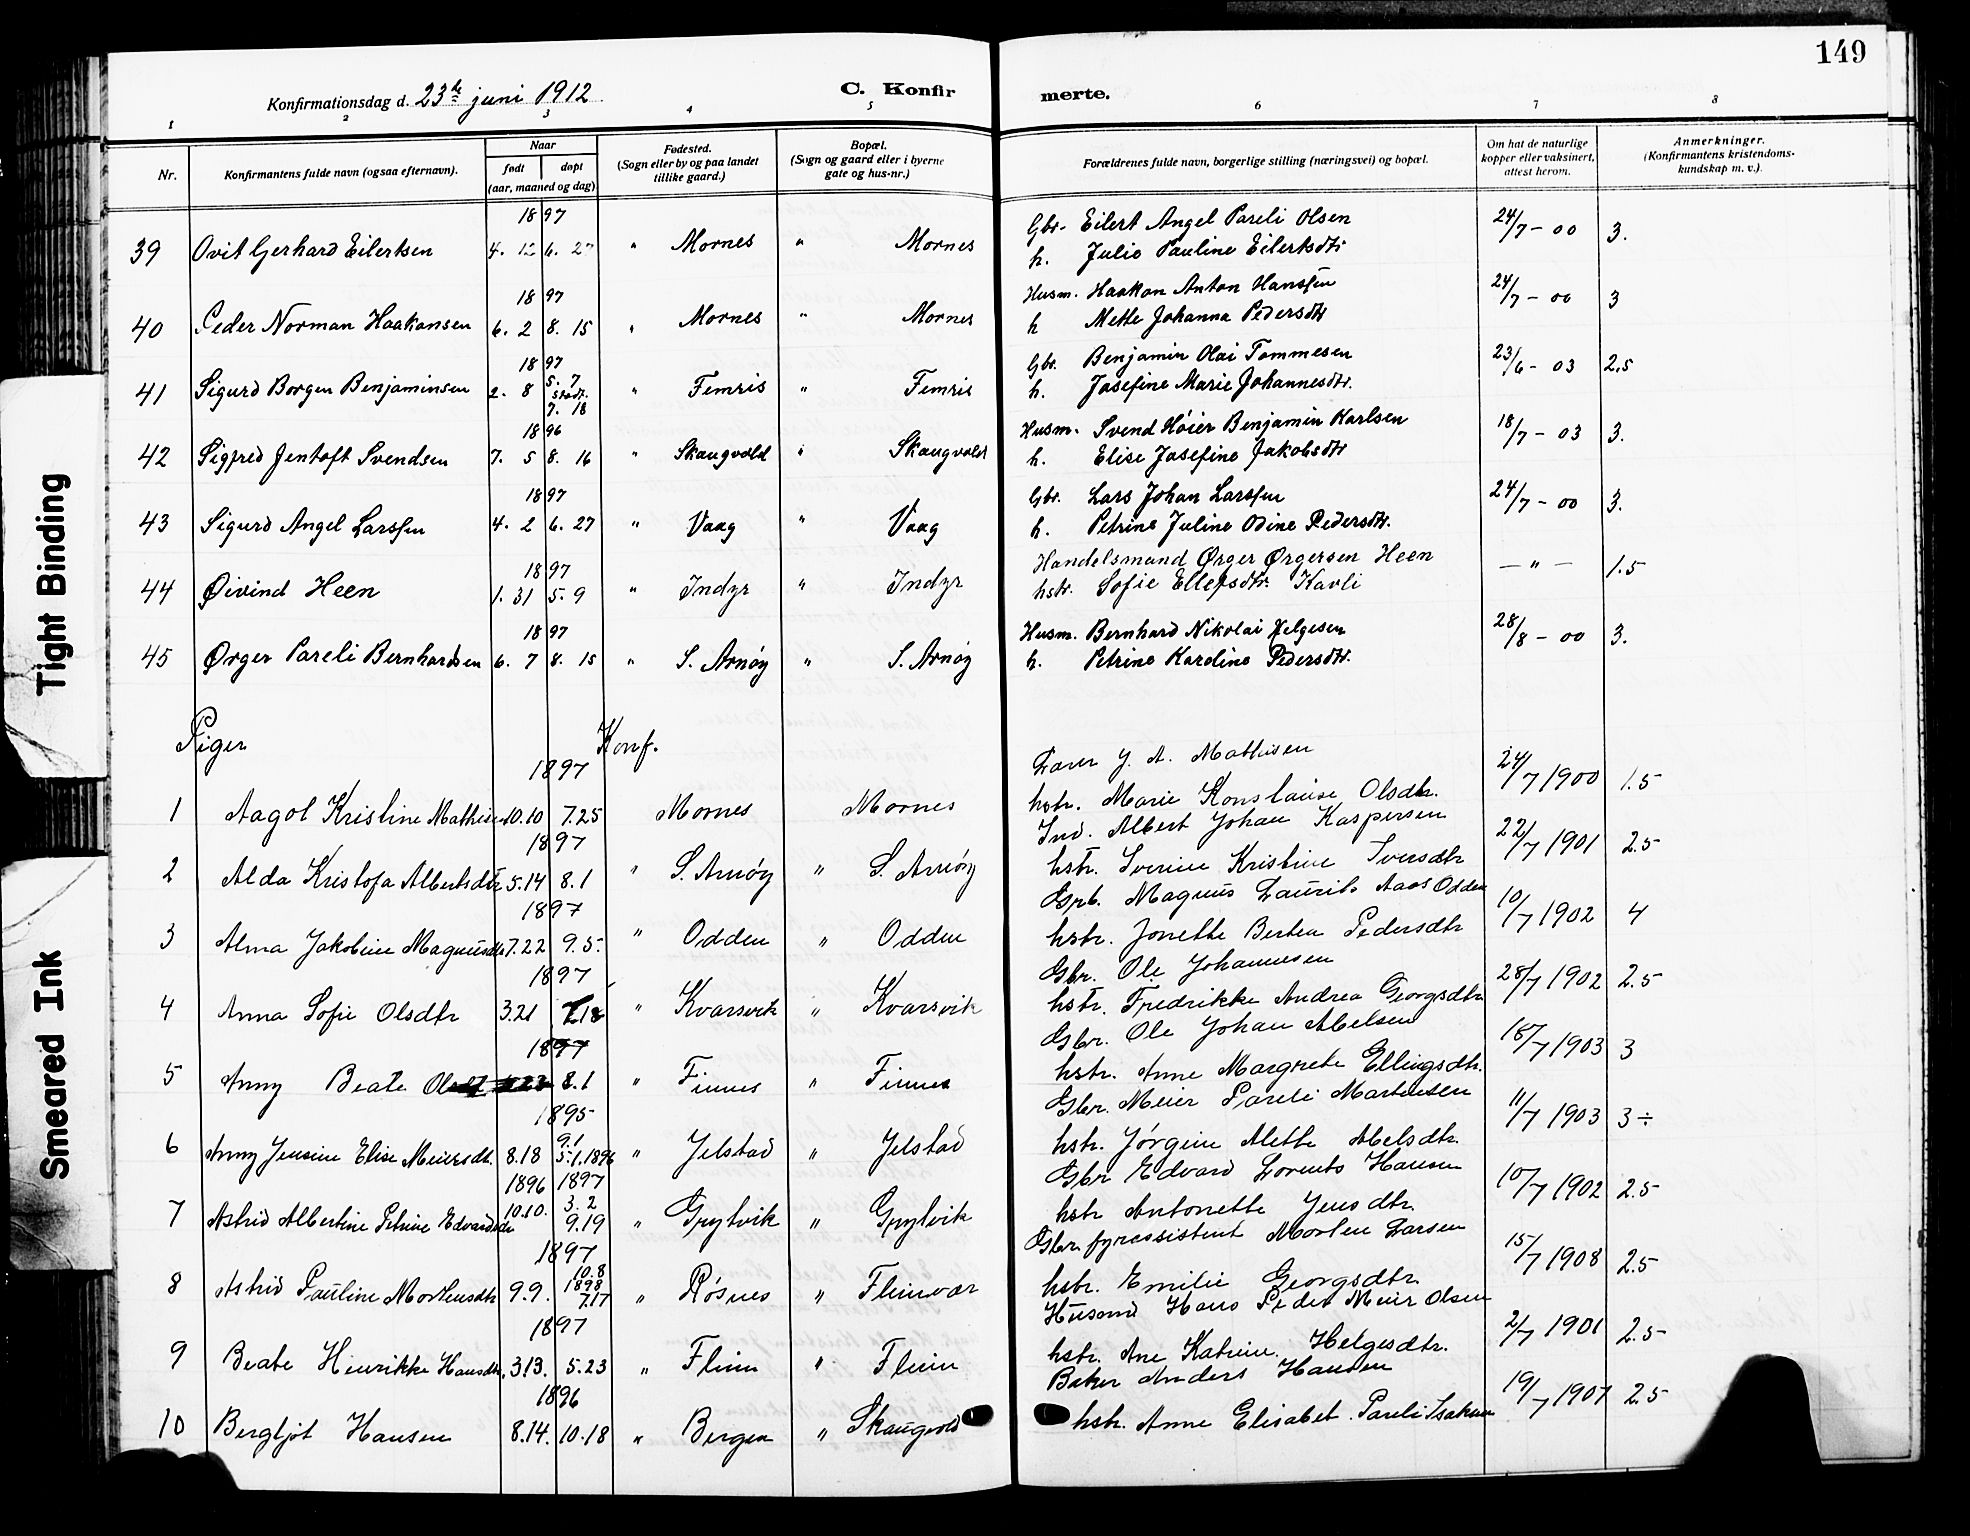 149
Konfirmationsdag d. 23de juni 1912. C. Konfir merte.
1 2 3 4 5 6 7 8
Nr. Konfirmantens fulde navn (ogsaa efternavn). Naar født døpt (aar, maaned og dag) Fødested. (Sogn eller by og paa landet tillike gaard.) Bopæl. (Sogn og gaard eller i byerne gate og hus-nr.) Forældrenes fulde navn, borgerlige stilling (næringsvei) og bopæl. Om hat de naturlige kopper eller vaksinert, attest herom. Anmerkninger. (Konfirmantens kristendoms-kundskap m. v.).
1897 Gbr. Eilert Angel Pareli Olsen 24/7 - 00
39 Ovit Gerhard Eilertsen 4. 12 6. 27 " Mornes " Mornes h. Julie Pauline Eilertsdtr 3.
1897 Husm. Haakon Anton Hanssen 24/7 - 00
40 Peder Norman Haakonsen 6. 2 8. 15 " Mornes " Mornes h Mette Johanna Pedersdtr 3
1897 Gbr. Benjamin Olai Tommesen 23/6 - 03
41 Sigurd Borgen Benjaminsen 2. 8 5. 7 stadf. 7. 18 " Femris " Femris h. Josefine Marie Johannesdtr. 2,5
1896 Husm. Svend Høier Benjamin Karlsen 18/7 - 03
42 Sigfred Jentoft Svendsen 7. 5 8. 16 " Skaugvold " Skaugvold h. Elise Josefine Jakobsdtr 3.
1897 Gbr. Lars Johan Larssen 24/7 - 00
43 Sigurd Angel Larssen 4. 2 6. 27 " Vaag " Vaag h. Petrine Juline Odine Pedersdtr. 3.
1897 Handelsmand Ørger Ørgersen Heen — " —
44 Øivind Heen 1. 31 5. 9 " Indyr " Indyr hstr. Sofie Ellefsdtr. Kavli 1.5
1897 Husm. Bernhard Nikolai Helgesen 28/8 - 00
45 Ørger Pareli Bernhardsen 6. 7 8. 15 " S. Arnøy " S. Arnøy h. Petrine Kardine Pedersdtr. 3.
Piger Konf.
1897 Lærer J. A. Mathisen 24/7 1900
1 Aagot Kristine Mathisen 10.10 7.25 Mornes Mornes hstr. Marie Konstanse Olsdtr. 1.5
1897 Ind. Albert Johan Kaspersen 22/7 1901
2 Alda Kristofa Albertsdtr 5.14 8.1 " S. Arnøy " S. Arnøy hstr. Iverine Kristine Iversdtr 2.5
1897 Gbr. Magnus Laurits Aas Odden 10/7 1902
3 Alma Jakobine Magnusdtr 7.22 9.5. " Odden " Odden hstr. Jonette Bertea Pedersdtr 4
1897 Gbr. Ole Johannesen 28/7 1902
4 Anna Sofie Olsdtr 3.21 7.18 " Kvarsvik " Kvarsvik hstr. Fredrikke Andrea Georgsdtr 2.5
1897 Gbr. Ole Johan Abelsen 18/7 1903
5 Anny Beate 8.1 " Finnes " Finnes hstr. Anne Margrete Ellingsdtr. 3
1895 Gbr. Meier Pareli Martinsen 11/7 1903
6 Anny Jensine Elise Meiersdtr. 8.18 9.1 5.1.1896 " Jelstad " Jelstad hstr. Jørgine Alette Abelsdtr. 3÷
1896 1897 Gbr Edvard Lorents Hansen 10/7 1902
7 Astrid Albertine Petrine Edvardsdtr 10.10. 3.2 9.19 " Grytvik " Grytvik hstr Antonette Jensdtr. 2.5
1897 Gbr fyrassistent Morten Larsen 15/7 1908
8 Astrid Pauline Mortensdtr 9.9. 10.8 1898 7.17 " Røsnes " Fleinvær hstr. Emilie Georgsdtr. 2.5
1897 Husmd Hans Peder Meier Olsen 2/7 1901
9 Beate Henrikke Hansdtr. 3.13. 5.23 " Flein " Flein hstr. Ane Katrine Helgesdtr. 2.5
1896 Baker Anders Hansen 19/7 1907
10 Bergljot Hansen 8.14. 10.18 " Bergen " Skaugvold hstr. Anne Elisabet Pareli Isaksen 2.5
Tight Binding
Smeared Ink